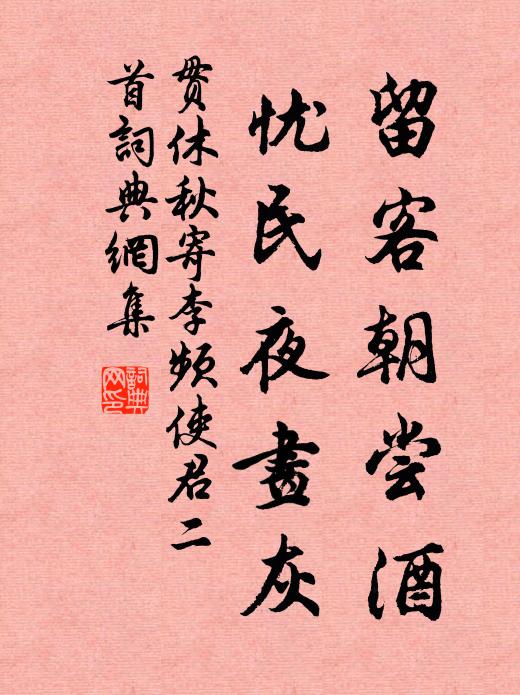 留客朝尝酒
忧民夜畫灰
贯休秋寄李频使君二
首詞典網集
詞典
网印